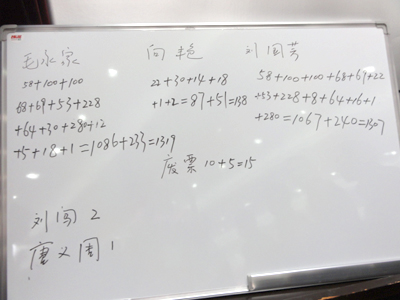 毛永家 向艳 刘国芳
58+100+100
68+69+53+228
+64+30+280+12
+5+18+1=1086+233=1319
22+30+14+18
+1+2=87+51=138
58+100+100+68+67+22
+53+228+8+64+16+1
+280=1067+240=1307
废票 10+5=15
刘闯 2
唐义周 1